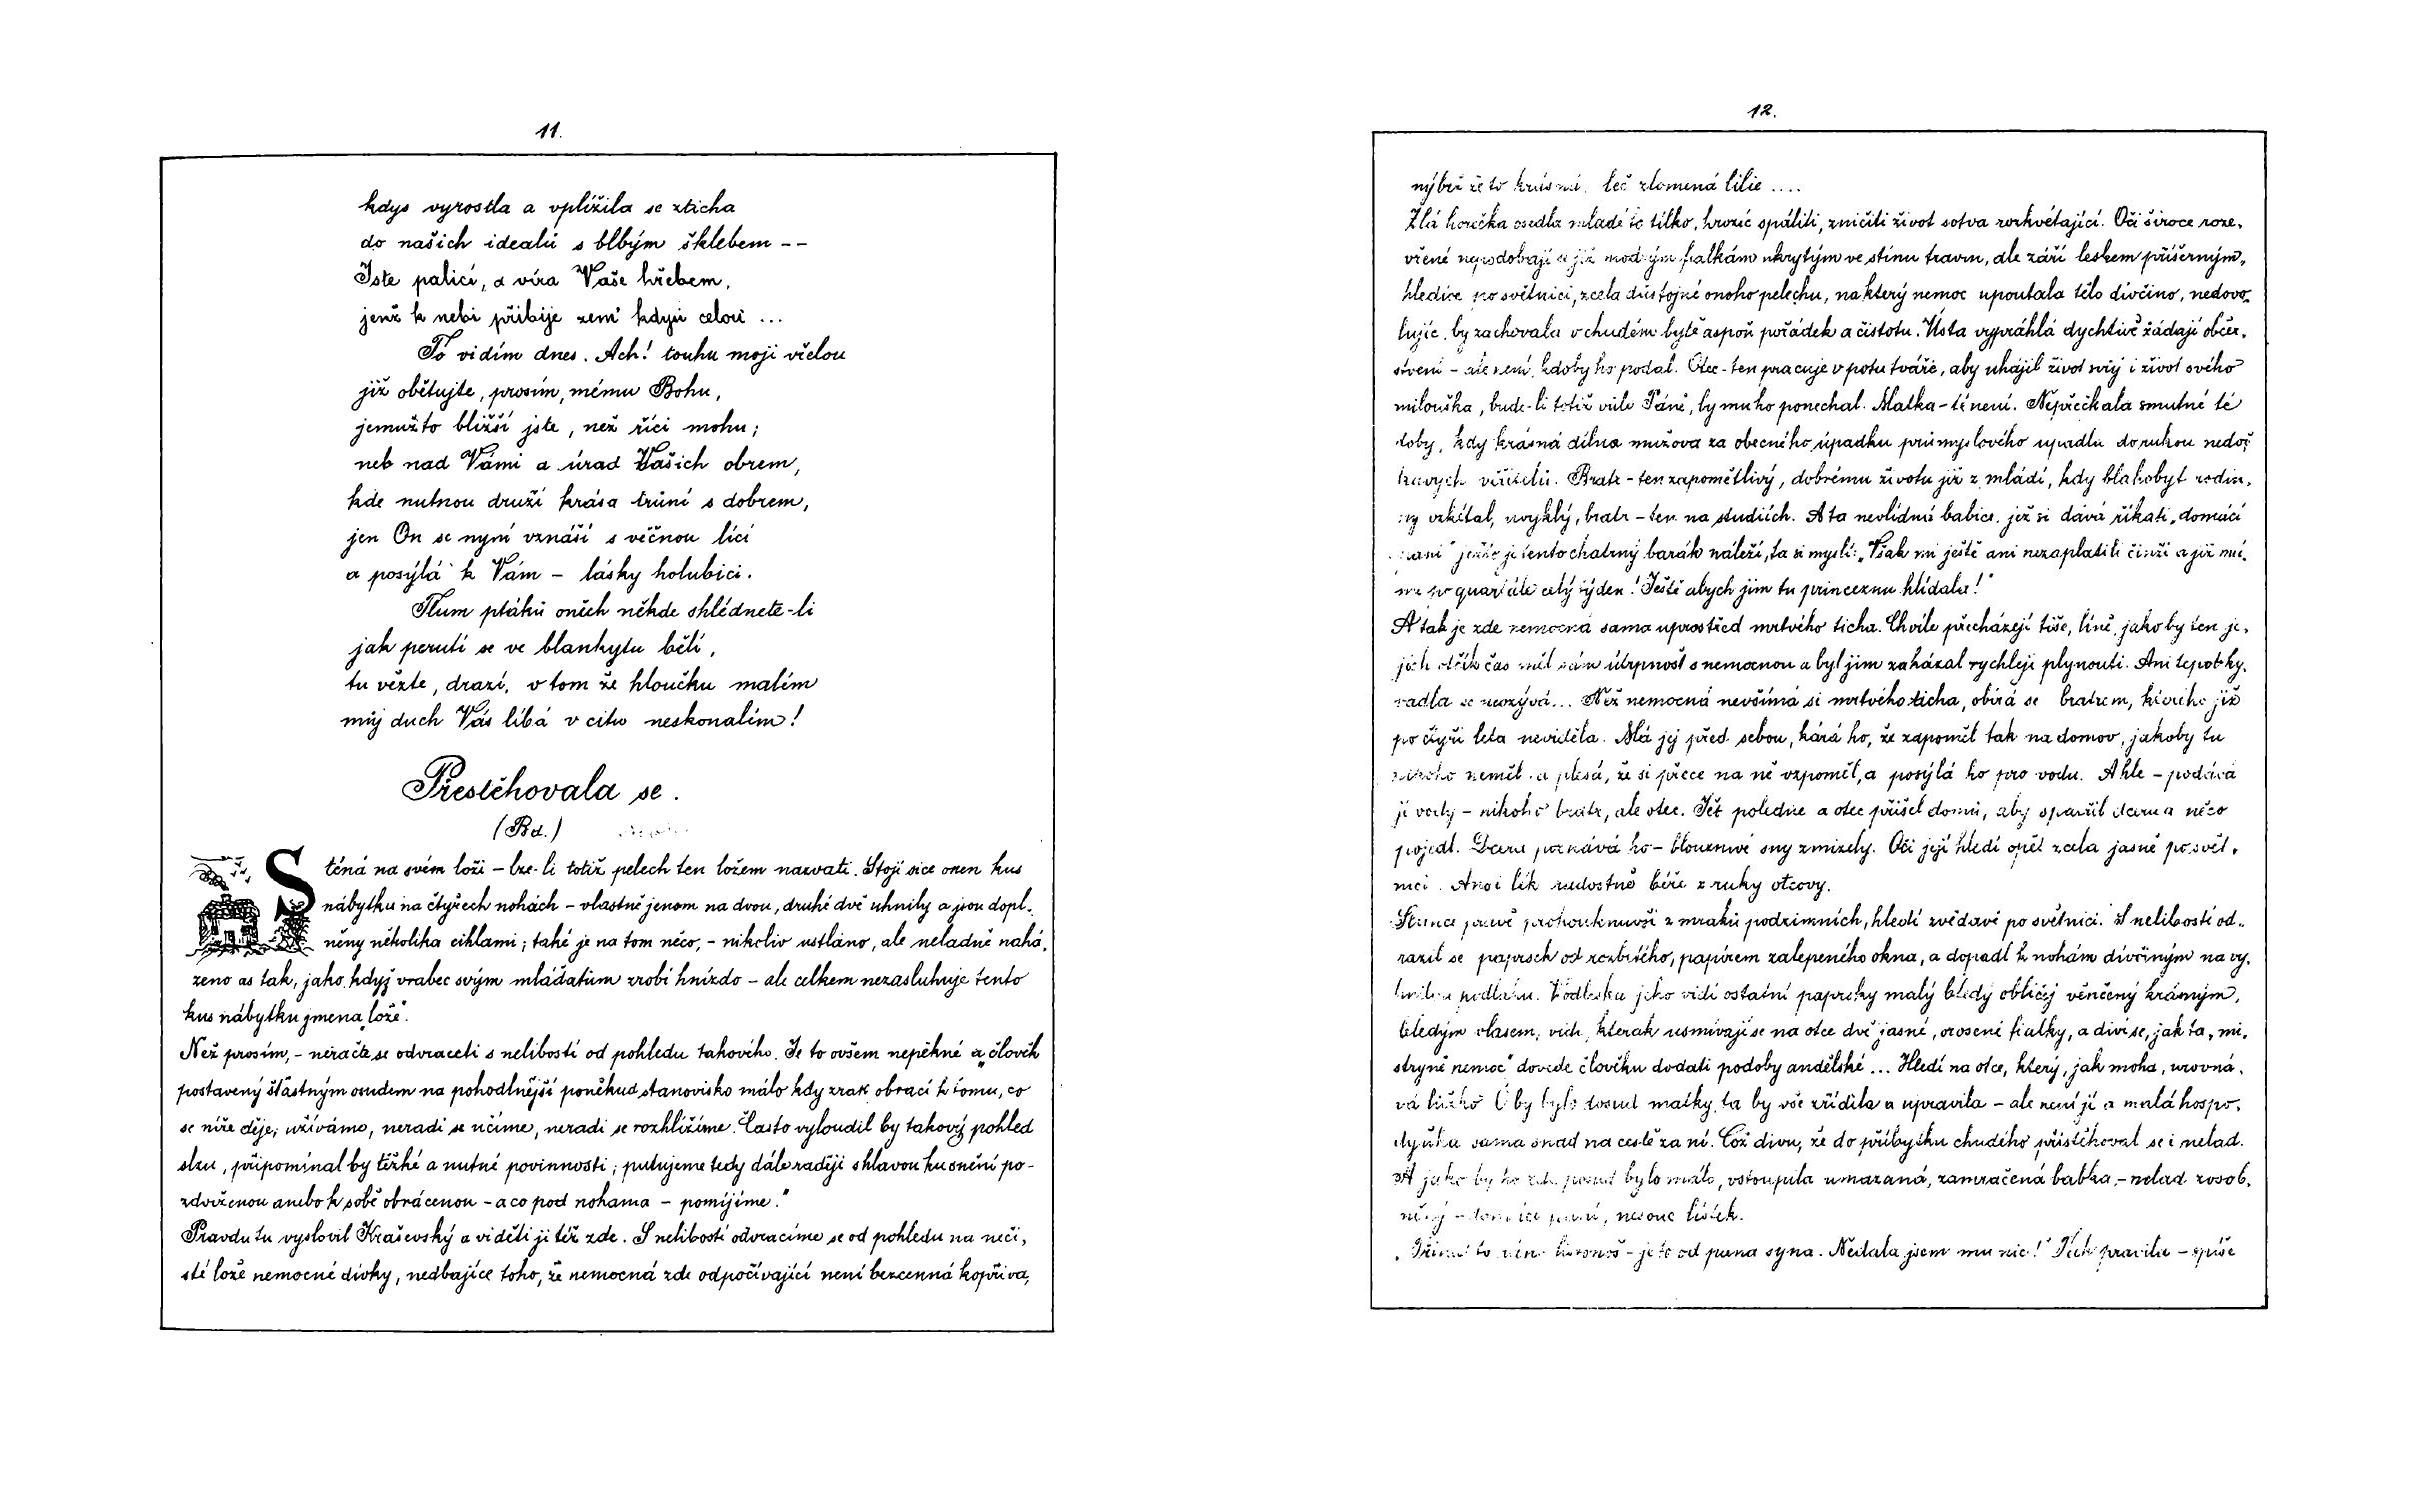 11.
kdys vyrostla a vplížila se zticha
do našich idealů s blbým šklebem - -
Jste palicí, a víra Vaše hřebem,
jenž k nebi přibije zem' kdysi celou ...
To vidím dnes. Ach! touhu moji vřelou
již obětujte, prosím, mému Bohu,
jemužto bližší jste, než říci mohu;
neb nad Vámi a úrad Vašich obrem,
kde nutnou druží krása trůní s dobrem,
jen On se nyní vznáší s věčnou lící
a posýlá k Vám – lásky holubici.
Tlum ptáků oněch někde shlédnete-li
jak perutí se ve blankytu bělí,
tu vězte, drazí, v tom že hloučku malém
můj duch Vás líbá v citu neskonalém!
Přestěhovala se.
(Bd.)
Sténá na svém loži – lze-li totiž pelech ten ložem nazvati. Stojí sice onen kus
nábytku na čtyřech nohách – vlastně jenom na dvou, druhé dvě uhnily a jsou dopl-
něny několika cihlami; také je na tom něco, – nikoliv ustláno, ale neladně nahá-
zeno as tak, jako když vrabec svým mláďatům zrobí hnízdo – ale celkem nezasluhuje tento
kus nábytku jmena „lože".
Než prosím, – neračte se odvraceti s nelibostí od pohledu takového. Je to ovšem nepěkné a „člověk
postavený šťastným osudem na pohodlnější poněkud stanovisko málo kdy zrak obrací k tomu, co
se níže děje; užíváme, neradi se učíme, neradi se rozhlížíme. Často vyloudil by takový pohled
slzu, připomínal by těžké a nutné povinnosti; putujeme tedy dále raději s hlavou ku snění po-
zdviženou anebo k sobě obrácenou – a co pod nohama – pomíjíme."
Pravdu tu vyslovil Kraševský a viděti ji též zde. S nelibostí odvracíme se od pohledu na neči-
sté lože nemocné dívky, nedbajíce toho, že nemocná zde odpočívající není bezcenná kopřiva,
12.
nýbrž že to krásná, leč zlomená lilie ....
Zlá horečka osedla mladé to tílko, hrozíc spáliti, zničiti život sotva rozkvétající. Oči široce roze-
vřené nepodobají se již modrým fialkám ukrytým ve stínu travin, ale září leskem příšerným,
hledíce po světnici, zcela důstojné onoho pelechu, na který nemoc upoutala tělo dívčino, nedovo-
lujíc, by zachovala v chudém bytě aspoň pořádek a čistotu. Ústa vyprahlá dychtivě žádají občer-
stvení – ale není, kdoby ho podal. Otec – ten pracuje v potu tváře, aby uhájil život svůj i život svého
miloušká, bude-li totiž vůle Páně, by mu ho ponechal. Matka – té není. Nepřečkala smutné té
doby, kdy krásná dílna mužova za obecného úpadku průmyslového upadla do rukou nedoč-
kavých věřitelů. Bratr – ten zapomětlivý, dobrému životu již z mládí, kdy blahobyt rodin-
ný vzkétal, zvyklý, bratr – ten na studiích. A ta nevlídná babice, jež si dává říkati „domácí
paní" ježto jí tento chatrný barák náleží, ta si myslí: „Však mi ještě ani nezaplatili činži a již má-
me po quartále celý týden! Ještě abych jim tu princeznu hlídala!"
A tak je zde nemocná sama uprostřed mrtvého ticha. Chvíle přecházejí tiše, líně, jakoby ten je-
jich otčík čas měl sám útrpnost s nemocnou a byl jim zakázal rychleji plynouti. Ani tepot ky-
vadla se neozývá... Než nemocná nevšímá si mrtvého ticha, obírá se bratrem, kterého již
po čtyři léta neviděla. Má jej před sebou, kárá ho, že zapoměl tak na domov, jakoby tu
nikoho neměl a plesá, že si přece na ně vzpoměl, a posýlá ho pro vodu. A hle – podává
jí vody – nikoliv bratr, ale otec. Jeť poledne a otec přišel domů, aby opatřil dceru a něco
pojedl. Dcera poznává ho – blouznivé sny zmizely. Oči její hledí opět zcela jasně po svět-
nici. Anoi lék radostně béře z ruky otcovy.
Slunce právě prohouknuvší z mraků podzimních, hledí zvědavě po světnici. S nelibostí od-
razil se paprsek od rozbitého, papírem zalepeného okna, a dopadl k nohám dívčiným na vy-
hnilou podlahu. V odlesku jeho vidí ostatní paprsky malý bledý obličej věnčený krásným,
bledým vlasem, vidí, kterak usmívají se na otce dvě jasné, orosené fialky, a diví se, jak ta „mi-
stryně nemoc" dovede člověku dodati podoby andělské ... Hledí na otce, který, jak moha, urovná-
vá lůžko. O by bylo tosud matky, ta by vše zřídila a upravila – ale není jí a malá hospo-
dyňka sama snad na cestě za ní. Což divu, že do příbytku chudého přistěhoval se i nelad.
A jako by ho zde posud bylo málo, vstoupila umazaná, zamračená babka, – nelad zosob-
něný – domácí paní, nesouc lístek.
to listonoš – je to od pana syna. Nedala jsem mu nic!" Tak pravila – spíše